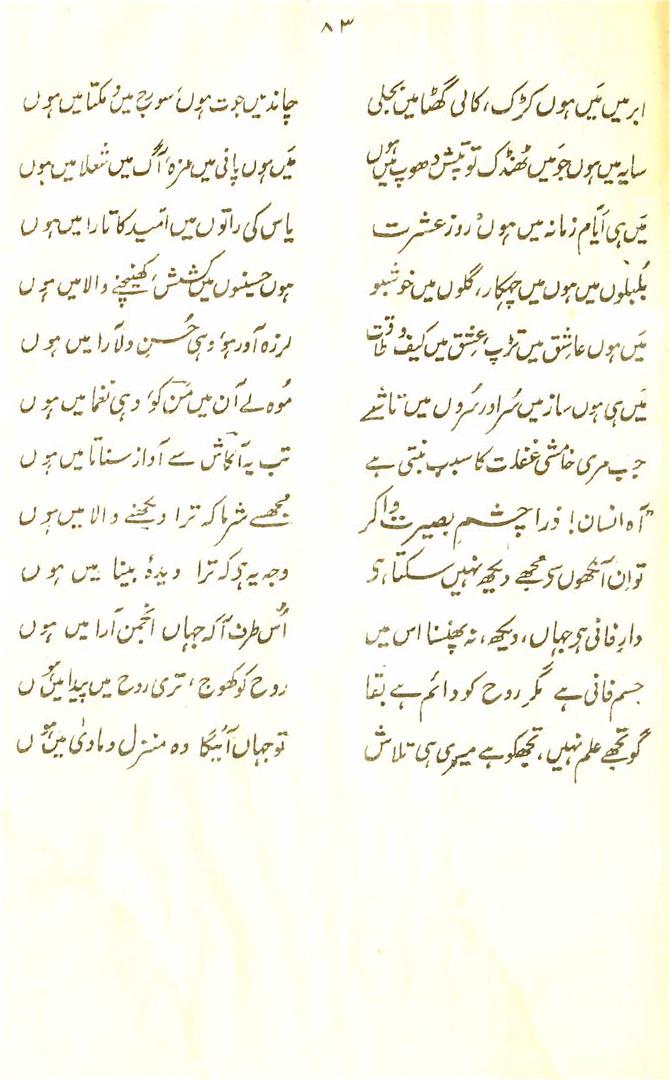 ۸۳
ابر میں مَیں ہوں کڑک، کالی گھٹا میں بجلی
چاند میں جوت ہوں، سورج میں دمکتا میں ہوں
سایہ میں ہوں جو مَیں ٹھنڈک تو تپش دھوپ میں ہوں
مَیں ہوں پانی میں مزہ، آگ میں شعلا میں ہوں
مَیں ہی ایّامِ زمانہ میں ہوں روزِ عشرت
یاس کی راتوں میں امّید کا تارا میں ہوں
بُلبلوں میں ہوں میں چہکار، گلوں میں خوشبو
ہوں حسینوں میں کشش، کھینچنے والا میں ہوں
مَیں ہوں عاشق میں تڑپ، عِشق میں کیف و طاقت
لرزہ آور ہو، وہی حُسنِ دلآرا میں ہوں
مَیں ہی ہوں ساز میں سُر اور سُروں میں تاثیر
مُوہ لے آن میں مَن کو، وہی نغما میں ہوں
جب مری خامشی غفلت کا سبب بنتی ہے
تب یہ آکاش سے آواز سناتا میں ہوں
”آہ انسان! ذرا چشمِ بصیرت وا کر
مُجھسے شرما کہ ترا دیکھنے والا میں ہوں
تو اِن آنکھوں سی مُجھے دیکھ نہیں سکتا ہی
وجہ یہ ہی کہ ترا دیدۂ بینا میں ہوں
دارِ فانی ہی جہاں، دیکھ، نہ پھنسنا اس میں
اُس طرف آ کہ جہاں انجمن آرا میں ہوں
جسم فانی ہے مگر روح کو دائم ہے بقا
روح کو کھوج، تری روح میں پیدا میں ہوں
گو تجھے علم نہیں، تجھکو ہے میری ہی تلاش
تو جہاں آئیگا وہ منزل و ماویٰ میں ہوں